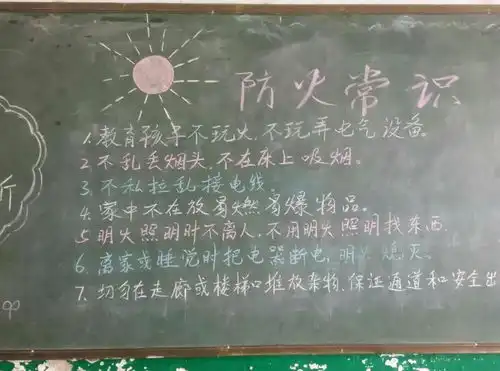 防火常识
1.教育孩子不玩火,不玩弄电气设备。
2.不乱丢烟头,不在床上吸烟。
3.不私拉乱接电线。
4.家中不在放易燃易爆物品。
5.明火照明时不离人,不用明火照明找东西.
6.离家或睡觉时把电器断电,明火熄灭。
7.切勿在走廊或楼梯口堆放杂物,保证通道和安全出